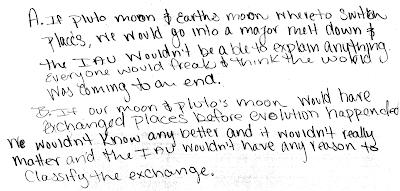 A. If pluto moon & Earths moon where to switch
places, we would go into a major melt down &
the IAU wouldn't be able to explain anything.
Everyone would freak & think the world
was coming to an end.
B. If our moon & pluto's moon would have
exchanged places before evolution happended
we wouldn't know any better and it wouldn't really
matter and the IAU wouldn't have any reason to
classify the exchange.